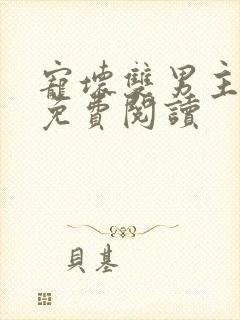 寵壞雙男主
免費閱讀
貝基